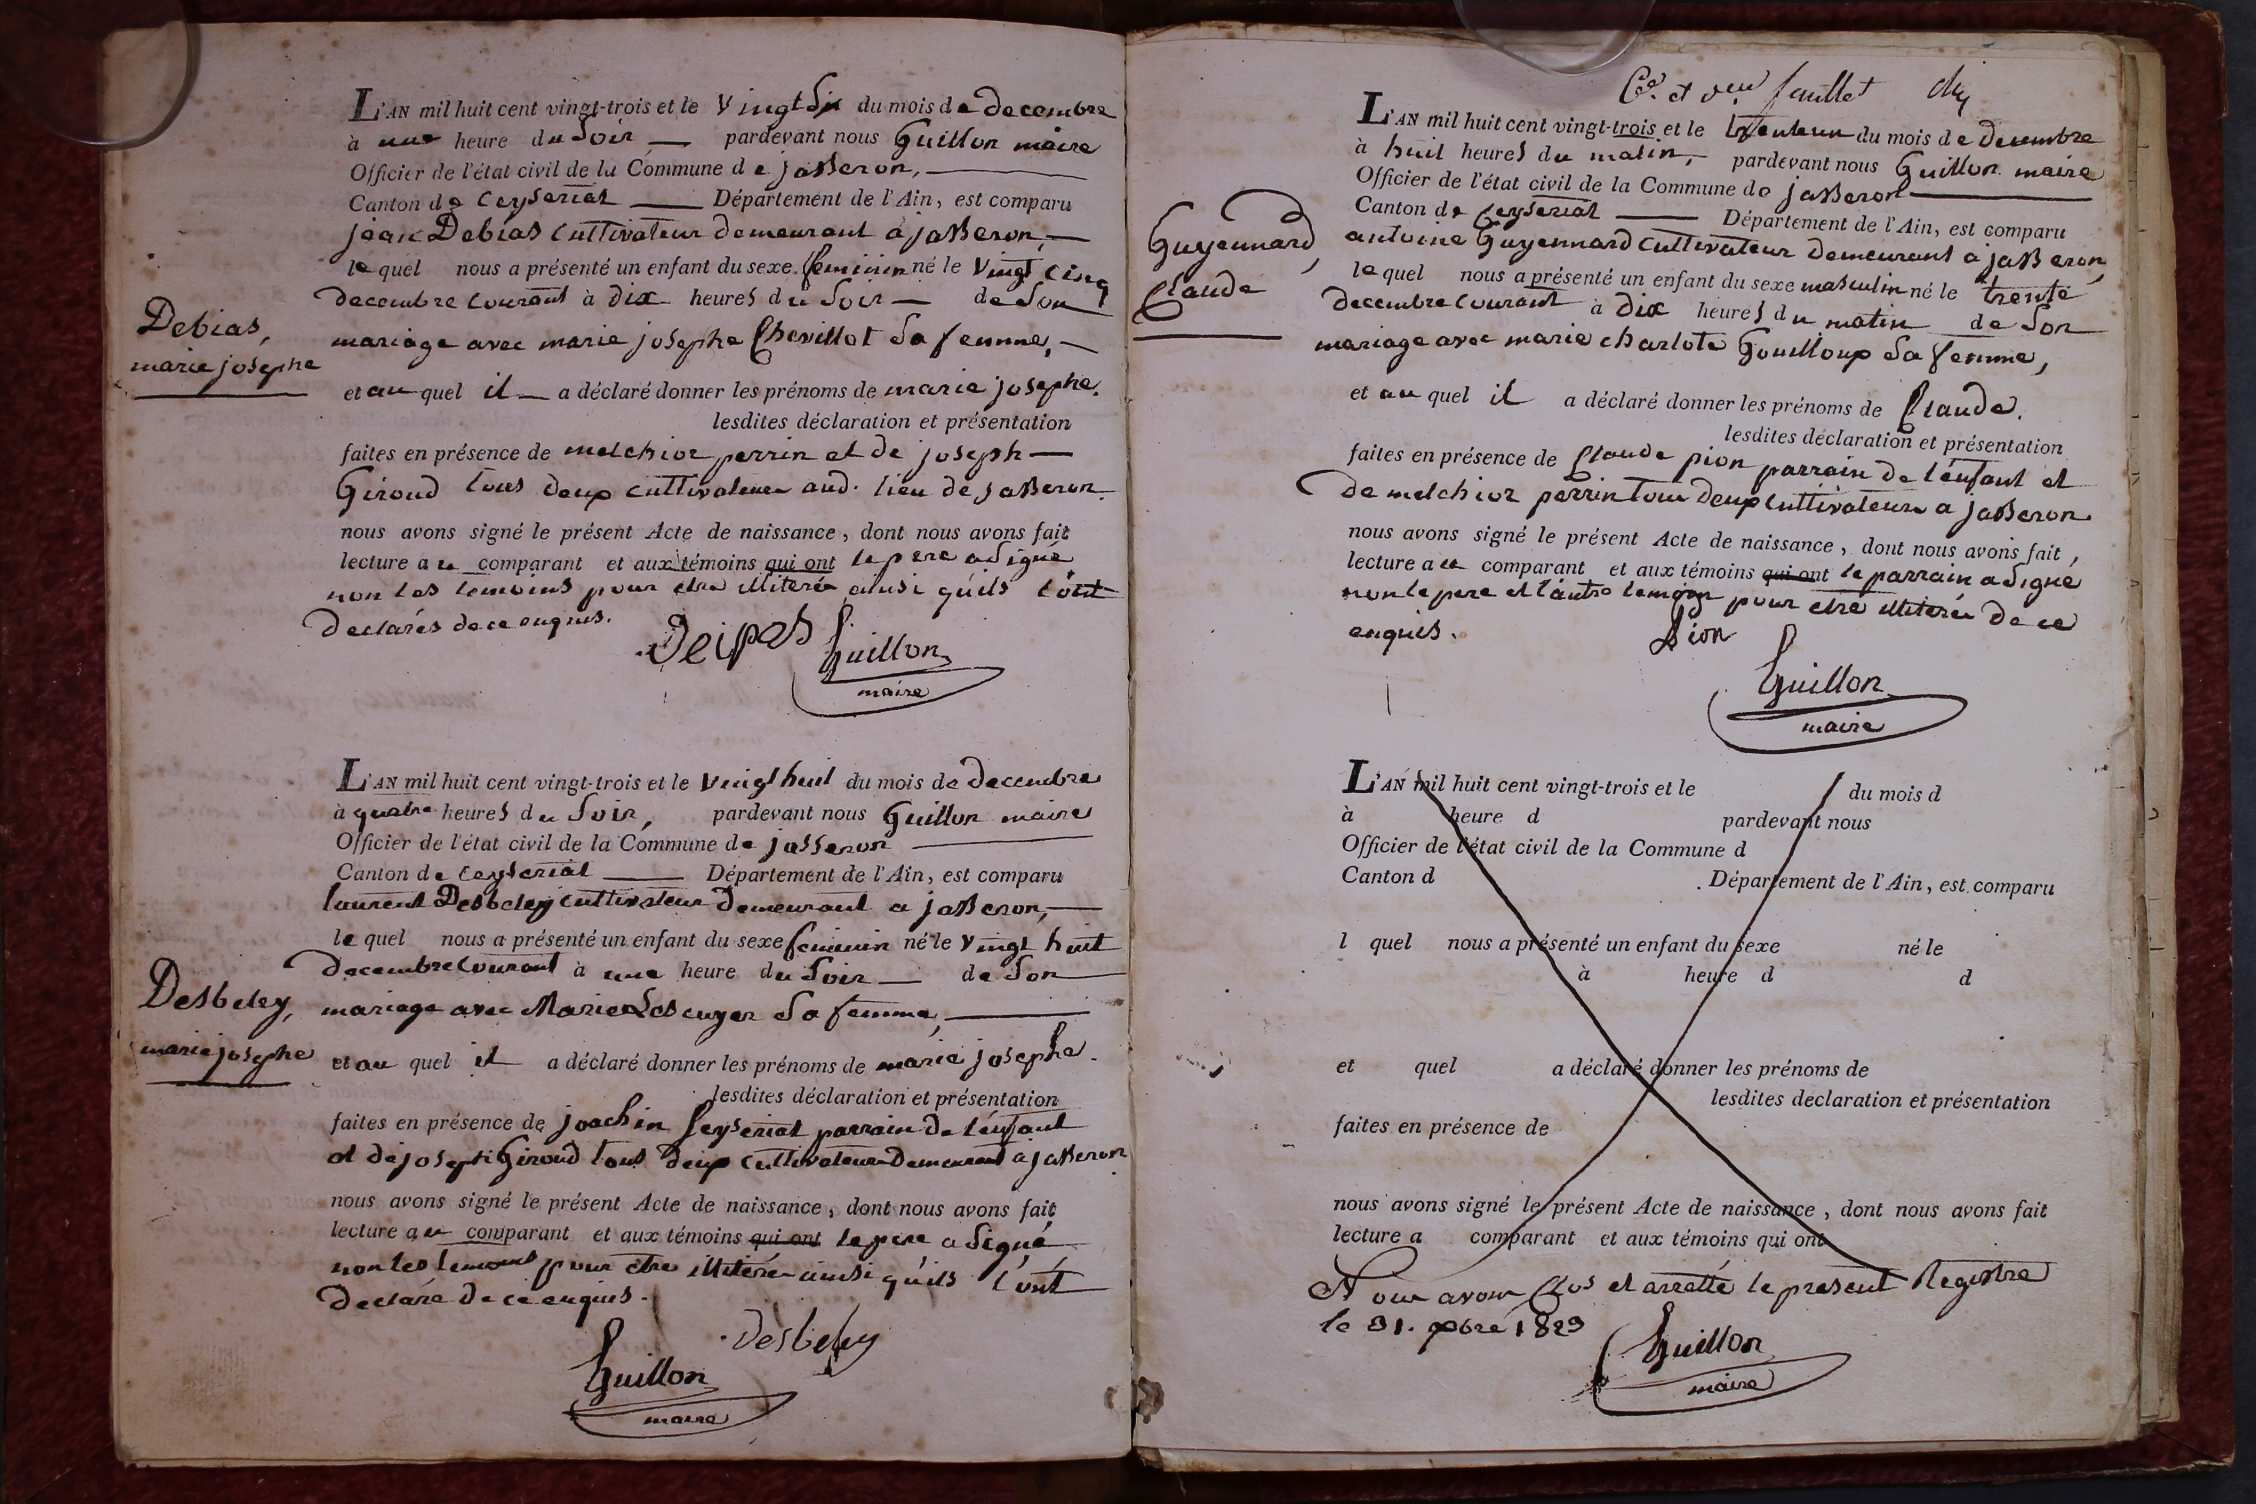 L'AN mil huit cent vingt-trois et le vingt Six du mois de decembre
à une heure du Soir — pardevant nous Guillon maire
Officier de l'état civil de la Commune de jasseron,
Canton de Ceyseriat — Département de l'Ain, est comparu
jean Debias cultivateur demeurant à jasseron,
le quel nous a présenté un enfant du sexe feminin né le vingt cinq
decembre courant à dix heures du Soir — de Son
Debias,
mariage avec marie josephe Chevillot Sa femme,
marie josephe
et au quel il — a déclaré donner les prénoms de marie josephe.
lesdites déclaration et présentation
faites en présence de melchior perrin et de joseph
Giroud tous deux cultivateur aud. lieu de jasseron.
nous avons signé le présent Acte de naissance, dont nous avons fait
lecture au comparant et aux témoins qui ont le pere a Signé
non les temoins pour etre illiteré ainsi qu'ils l'ont
declarés de ce enquis.
Guillon
maire
L'AN mil huit cent vingt-trois et le vingt huit du mois de decembre
à quatre heures du Soir, pardevant nous Guillon maire
Officier de l'état civil de la Commune de jasseron
Canton de Ceyseriat — Département de l'Ain, est comparu
laurent Desbeley cultivateur demeurant a jasseron,
le quel nous a présenté un enfant du sexe feminin né le vingt huit
decembre courant à une heure du Soir — de Son
Desbeley,
mariage avec Marie Lescuyer Sa femme,
marie josephe
et au quel il a déclaré donner les prénoms de marie josephe.
lesdites déclaration et présentation
faites en présence de joachin Ceyseriat parrain de l'enfant
et de joseph Giroud tous deux cultivateur demeurant à jasseron
nous avons signé le présent Acte de naissance, dont nous avons fait
lecture au comparant et aux témoins qui ont le pere a Signé
non les temoins pour etre illiteré ainsi qu'ils l'ont
declaré de ce enquis.
Desbeley
Guillon
maire
feuillet
L'AN mil huit cent vingt-trois et le trenteun du mois de decembre
à huit heures du matin, pardevant nous Guillon maire
Officier de l'état civil de la Commune de jasseron
Canton de Ceyseriat — Département de l'Ain, est comparu
Guyennard,
antoine Guyennard cultivateur demeurant à jasseron,
Claude
le quel nous a présenté un enfant du sexe masculin né le trente
decembre courant à dix heures du matin de Son
mariage avec marie charlote Gouilloux Sa femme,
et au quel il a déclaré donner les prénoms de Claude.
lesdites déclaration et présentation
faites en présence de Claude pion parrain de l'enfant et
de melchior perrin tous deux cultivateurs a jasseron
nous avons signé le présent Acte de naissance, dont nous avons fait,
lecture au comparant et aux témoins qui ont le parrain a Signé
non le pere et l'autre temoin pour etre illiteré de ce
enquis.
pion
Guillon
maire
L'AN mil huit cent vingt-trois et le du mois d
à heure d pardevant nous
Officier de l'état civil de la Commune d
Canton d Département de l'Ain, est comparu
l quel nous a présenté un enfant du sexe né le
à heure d d
et quel a déclaré donner les prénoms de
lesdites déclaration et présentation
faites en présence de
nous avons signé le présent Acte de naissance, dont nous avons fait
lecture a comparant et aux témoins qui ont
Nous avons Clos et arretté le present Registre
le 31. xbre 1823
Guillon
maire